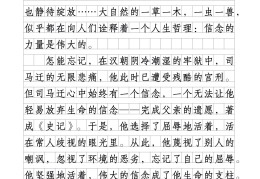 也静待绽放……大自然的一草一木，一虫一兽，
似乎都在向人们诠释着一个人生哲理：信念的
力量是伟大的。
怎能忘记，在汉朝阴冷潮湿的牢狱中，司
马迁的无限悲痛，他此时已遭受残酷的宫刑。
但司马迁心中始终有一个信念，一个无法让他
轻易放弃生命的信念——完成父亲的遗愿，著
成《史记》。于是，他选择了屈辱地活着，活
在常人歧视的眼光里。从此，他蔑视了别人的
嘲讽，忽视了环境的恶劣，忘记了自己的屈辱。
他坚强地活着，伟大的信念成了他生命的支柱。